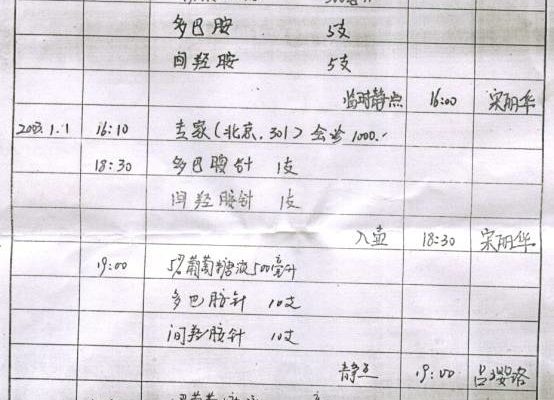 多巴胺 5支
间羟胺 5支
临时静点 16:00 宋丽华
2003.1.1 16:10 专家(北京.301)会诊 1000.-
18:30 多巴胺针 1支
间羟胺针 1支
入壶 18:30 宋丽华
19:00 5%葡萄糖液500毫升
多巴胺针 10支
间羟胺针 10支
静点 19:00